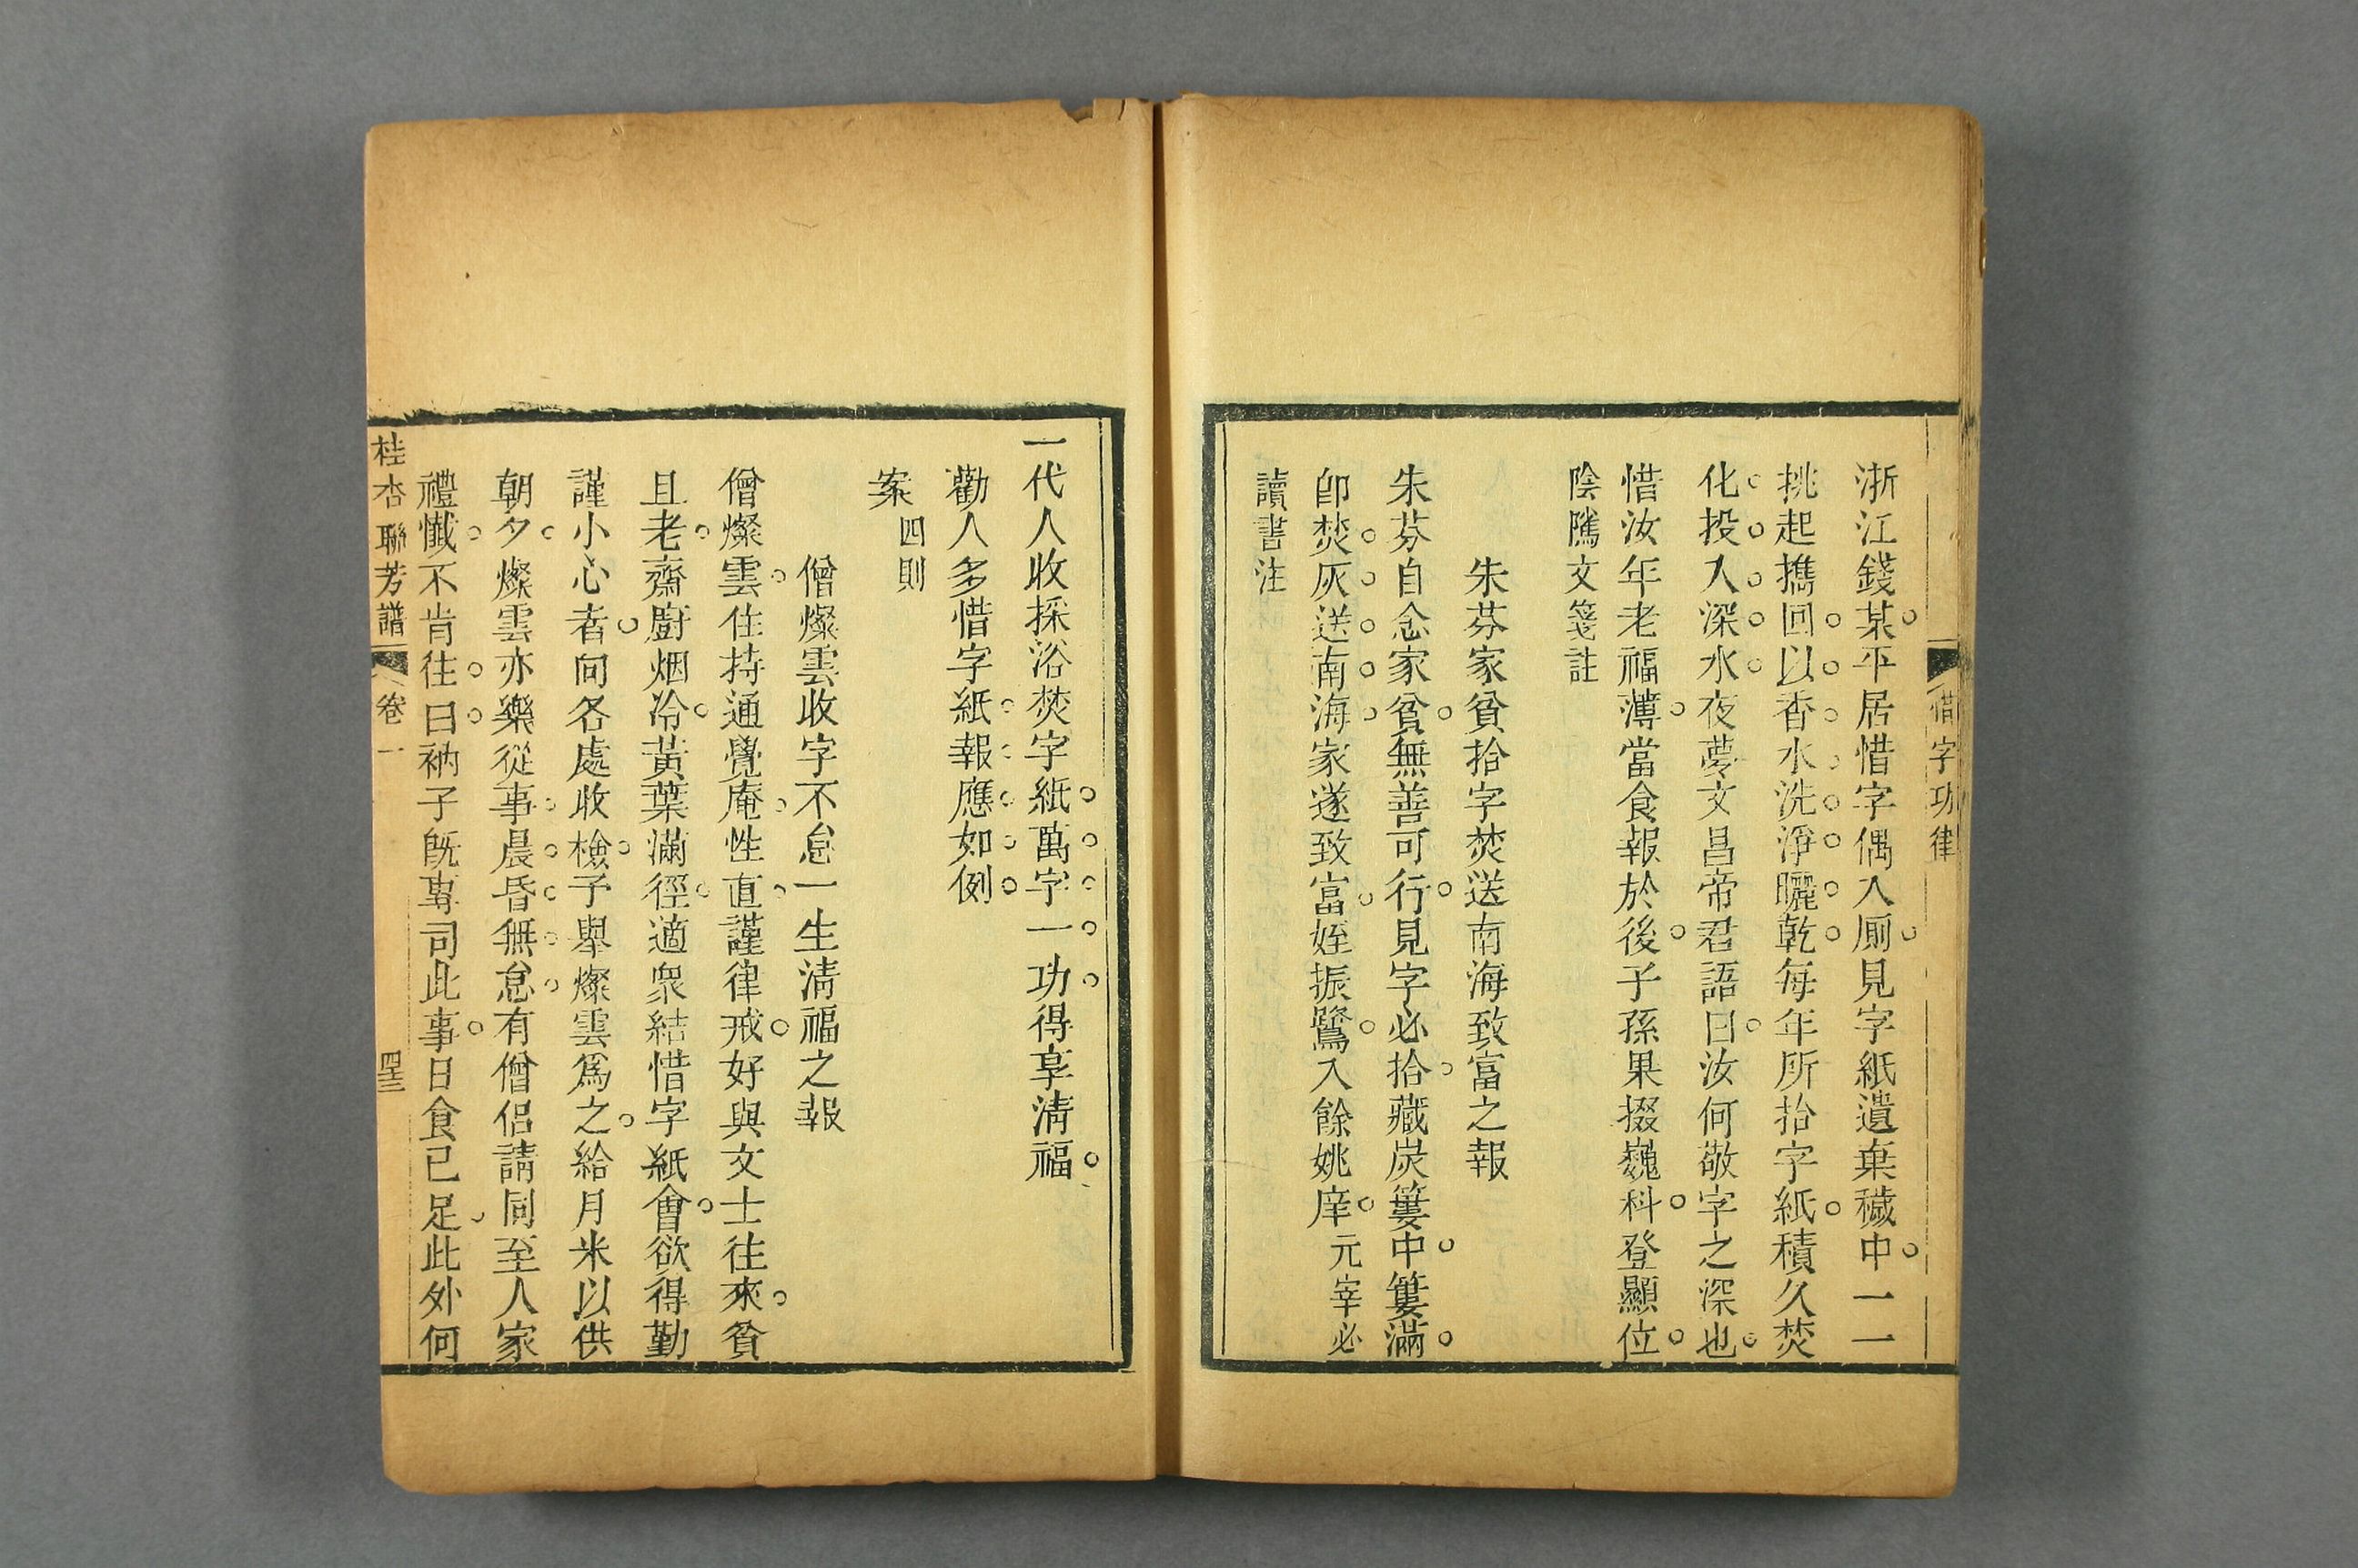 惜字功律
浙江錢某平居惜字偶入厠見字紙遺棄穢中一一
挑起擕回以香水洗淨曬乾每年所拾字紙積久焚
化投入深水夜夢文昌帝君語曰汝何敬字之深也
惜汝年老福薄當食報於後子孫果掇巍科登顯位
陰隲文箋註
朱芬家貧拾字焚送南海致富之報
朱芬自念家貧無善可行見字必拾藏炭簍中簍滿
卽焚灰送南海家遂致富姪振鷺入餘姚庠元宰必
讀書注
一代人收採浴焚字紙萬字一功得享淸福
勸人多惜字紙報應如例
案四則
僧燦雲收字不怠一生淸福之報
僧燦雲住持通覺庵性直謹律戒好與文士往來貧
且老齋廚烟冷黃葉滿徑適衆結惜字紙會欲得勤
謹小心者向各處收檢予舉燦雲爲之給月米以供
朝夕燦雲亦樂從事晨昏無怠有僧侶請同至人家
禮懺不肯往曰衲子旣專司此事日食已足此外何
桂杏聯芳譜 卷一 四十三